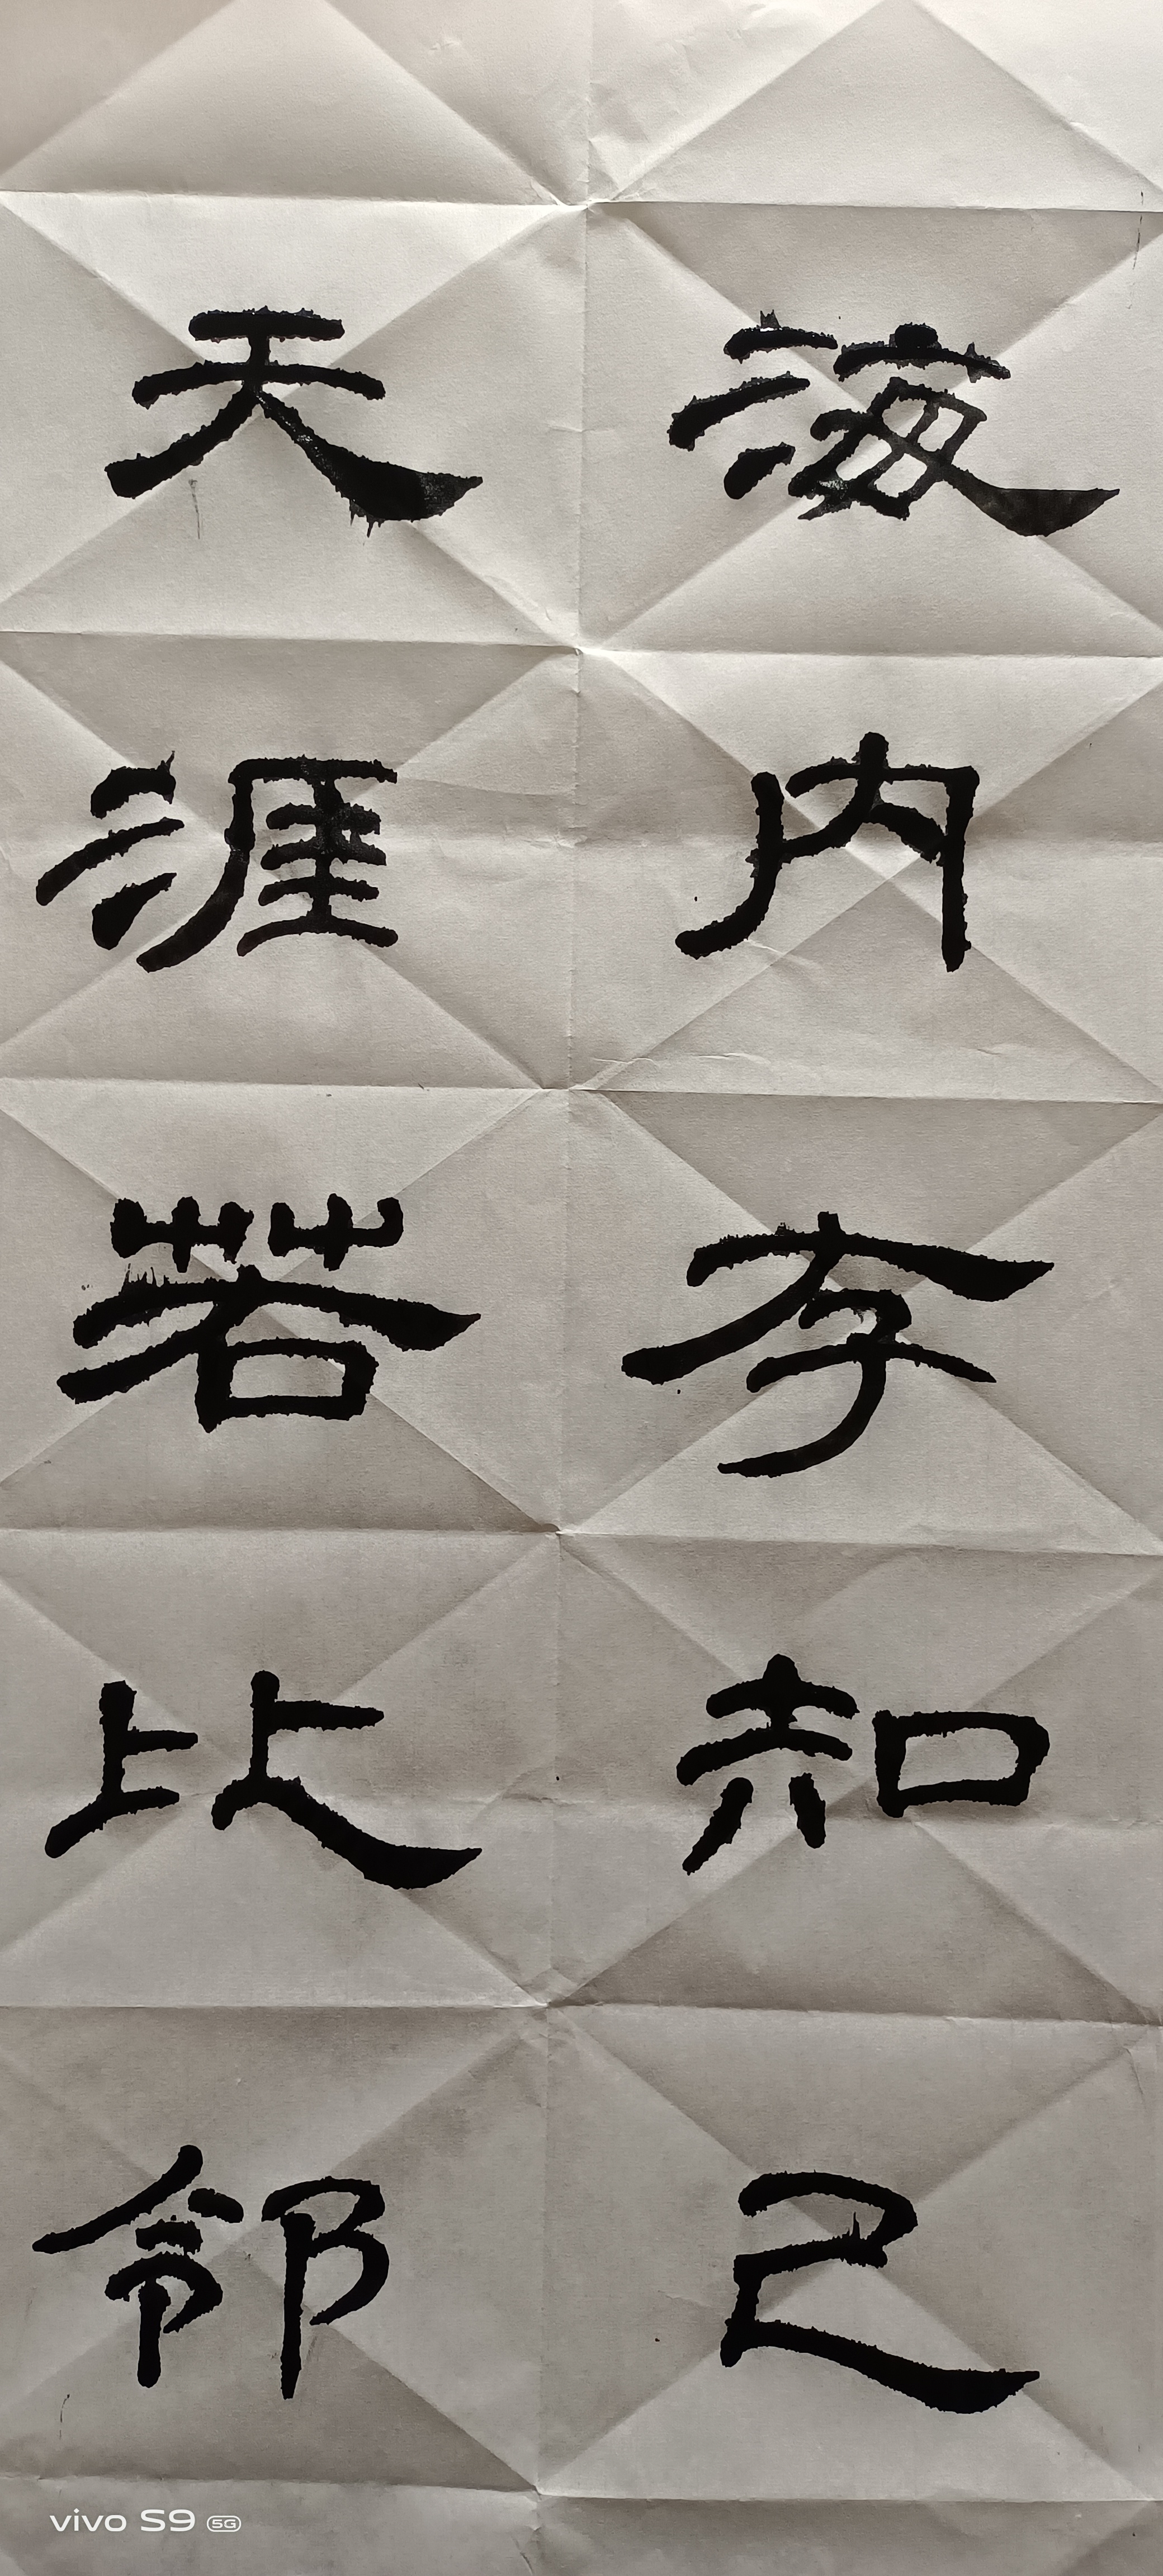 海内存知己
天涯若比邻
vivo S9 5G